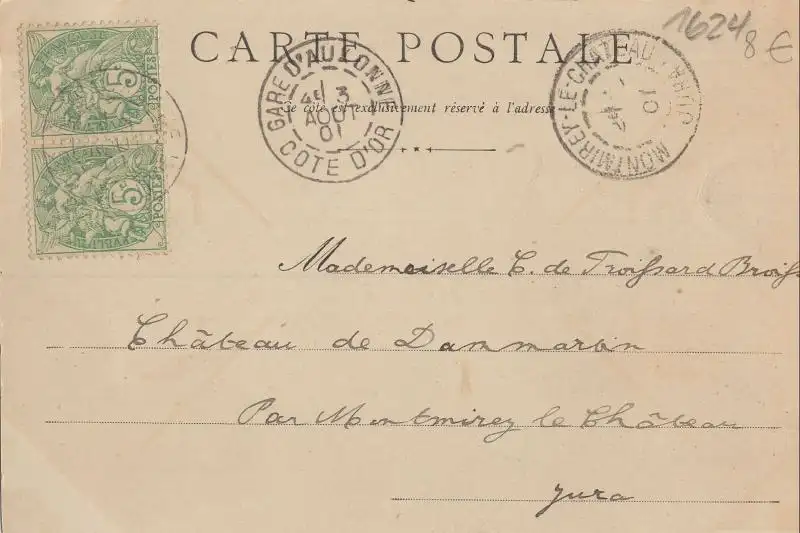 1624
8 €
CARTE POSTALE
Ce côté est exclusivement réservé à l'adresse
5c
POSTES
5c
POSTES
GARE D'AUXONNE
4E 3
AOUT
01
COTE D'OR
MONTMIREY-LE-CHATEAU (JURA)
01
Mademoiselle C. de Troissard Broiss
Château de Dammartin
Par Montmirey le Château
Jura